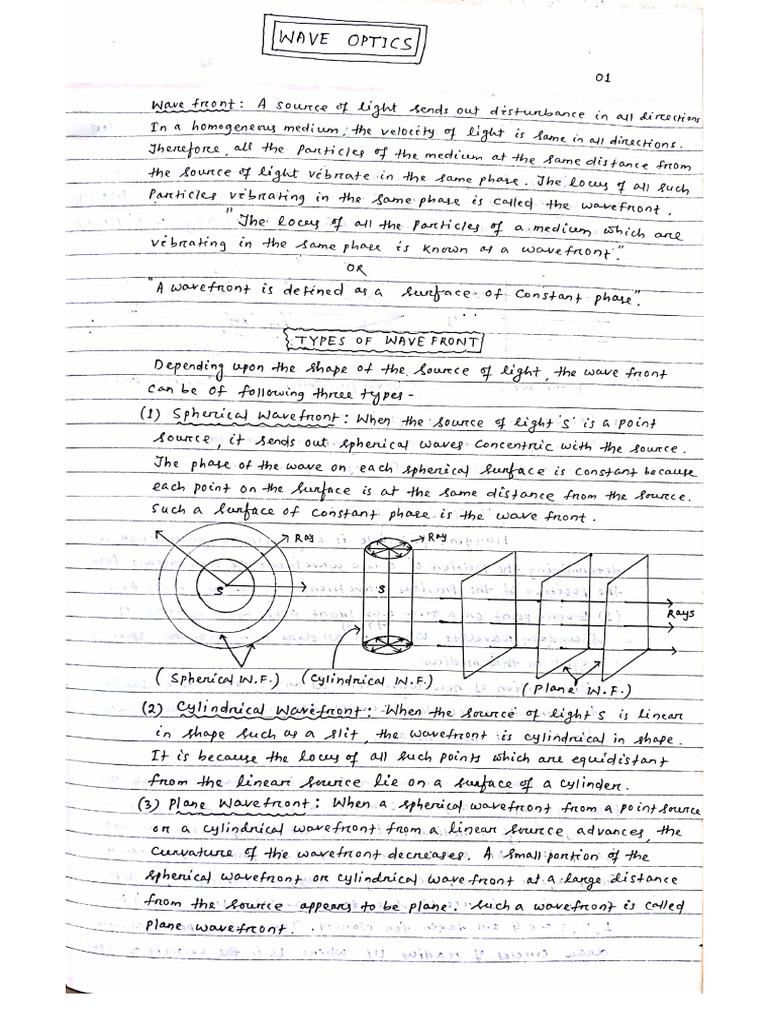 WAVE OPTICS
01
Wave front: A source of light sends out disturbance in all directions
In a homogeneous medium, the velocity of light is same in all directions.
Therefore, all the particles of the medium at the same distance from
the source of light vibrate in the same phase. The locus of all such
Particles vibrating in the same phase is called the wavefront.
"The locus of all the particles of a medium which are
vibrating in the same phase is known as a wavefront".
OR
"A wavefront is defined as a surface of constant phase".
TYPES OF WAVE FRONT
Depending upon the shape of the source of light, the wave front
can be of following three types -
(1) Spherical Wavefront: When the source of light 'S' is a point
source, it sends out spherical waves concentric with the source.
The phase of the wave on each spherical surface is constant because
each point on the surface is at the same distance from the source.
Such a surface of constant phase is the wave front.
Ray
Ray
S
S
Rays
(Spherical W.F.) (Cylindrical W.F.)
(Plane W.F.)
(2) Cylindrical Wavefront: When the source of light S is linear
in shape such as a slit, the wavefront is cylindrical in shape.
It is because the locus of all such points which are equidistant
from the linear source lie on a surface of a cylinder.
(3) Plane Wavefront: When a spherical wavefront from a point source
or a cylindrical wavefront from a linear source advances, the
curvature of the wavefront decreases. A small portion of the
spherical wavefront or cylindrical wavefront at a large distance
from the source appears to be plane. Such a wavefront is called
plane wavefront.